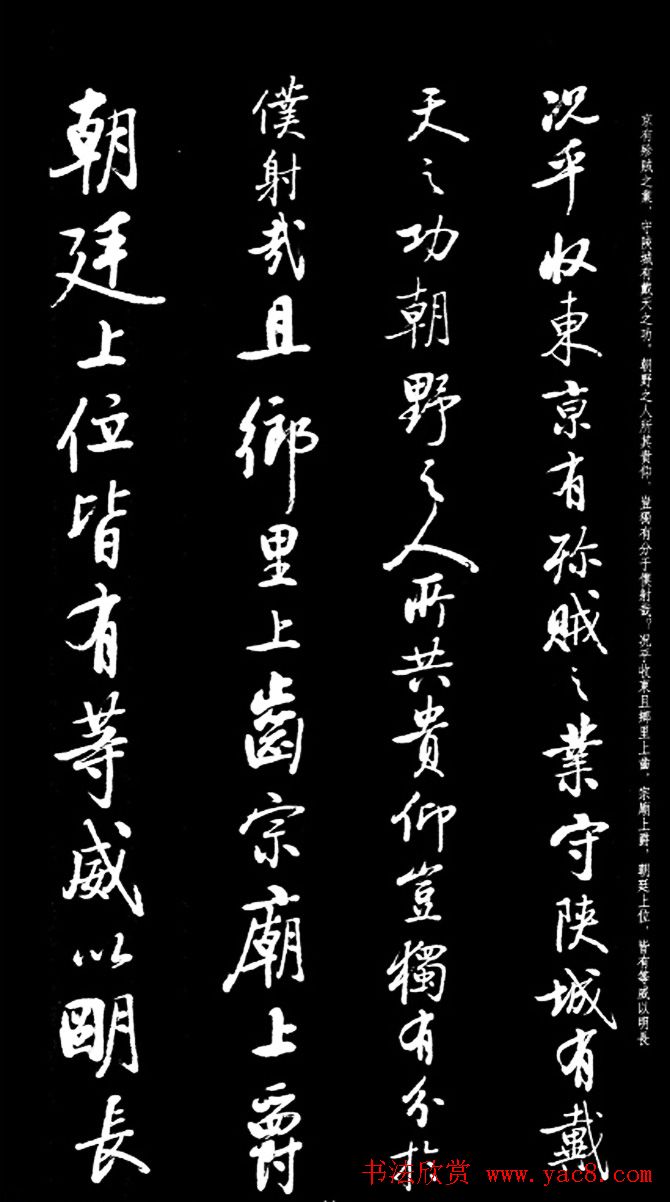 京有殄賊之業，守陝城有戴天之功。朝野之人所其貴仰，豈獨有分于僕射哉？况乎收東且鄉里上齒，宗廟上爵，朝廷上位，皆有等威以明長
况乎收東京有殄賊之業守陝城有戴
天之功朝野之人所共貴仰豈獨有分於
僕射哉且鄉里上齒宗廟上爵
朝廷上位皆有等威以明長
书法欣赏 www.yac8.com